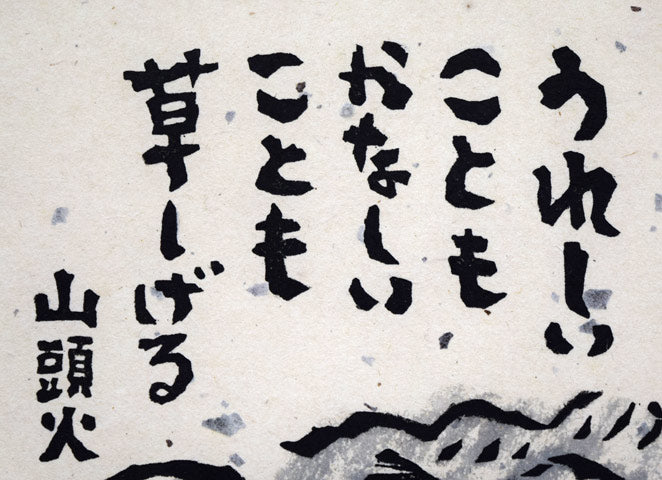 うれしい
ことも
かなしい
ことも
草しげる
山頭火